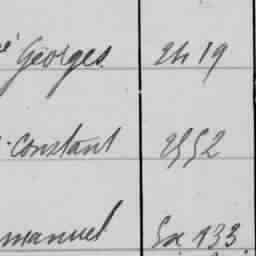 é Georges 2h 19
Constant 2552
manuel 5x 133